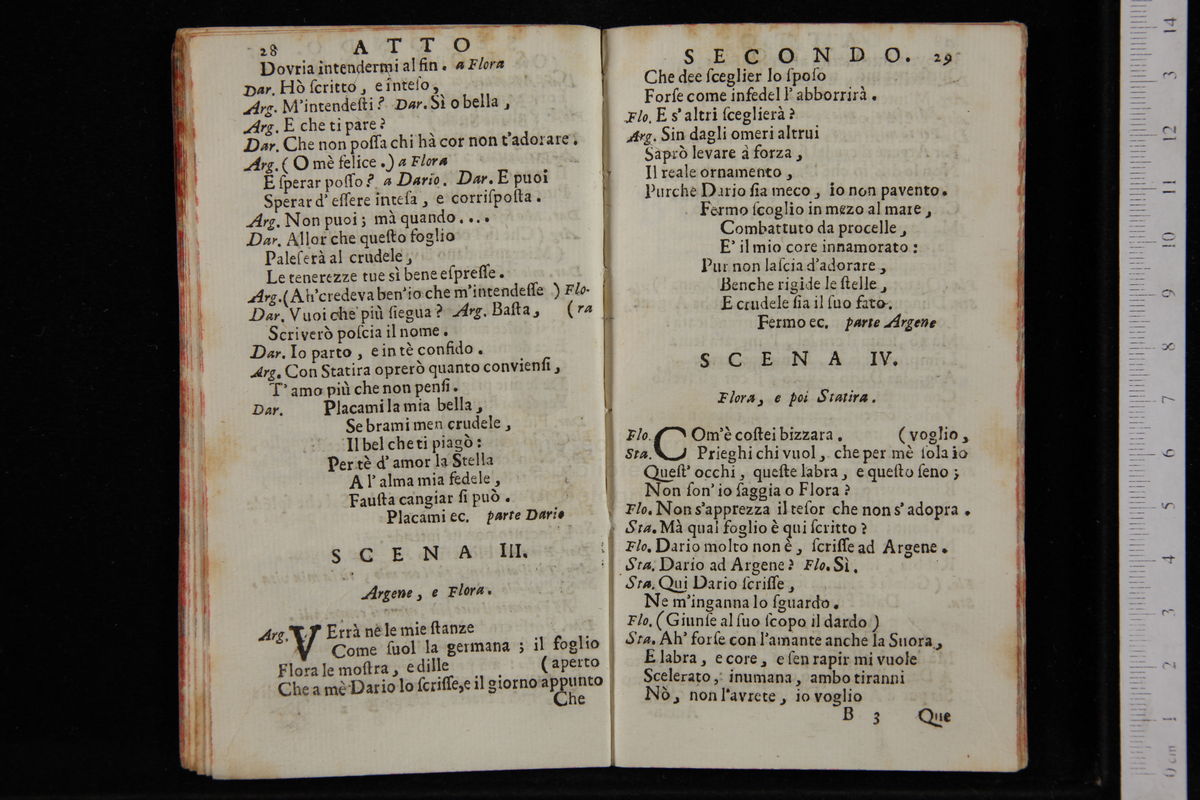 28 ATTO
Dovria intendermi al fin. a Flora
Dar. Hò ſcritto, e inteſo,
Arg. M'intendeſti? Dar. Sì o bella,
Arg. E che ti pare?
Dar. Che non poſſa chi hà cor non t'adorare.
Arg. (O mè felice.) a Flora
E ſperar poſſo? a Dario. Dar. E puoi
Sperar d'eſſere inteſa, e corriſpoſta.
Arg. Non puoi; mà quando....
Dar. Allor che queſto foglio
Paleſerà al crudele,
Le tenerezze tue sì bene eſpreſſe.
Arg. (Ah'credeva ben'io che m'intendeſſe) Flo-
Dar. Vuoi che più ſiegua? Arg. Baſta, (ra
Scriverò poſcia il nome.
Dar. Io parto, e in tè confido.
Arg. Con Statira oprerò quanto convienſi,
T'amo più che non penſi.
Dar. Placami la mia bella,
Se brami men crudele,
Il bel che ti piagò:
Per tè d'amor la Stella
A l'alma mia fedele,
Fauſta cangiar ſi può.
Placami ec. parte Dario
SCENA III.
Argene, e Flora.
Arg. VErrà nè le mie ſtanze
Come ſuol la germana; il foglio
Flora le moſtra, e dille (aperto
Che a mè Dario lo ſcriſſe, e il giorno appunto
Che
SECONDO. 29
Che dee ſceglier lo ſpoſo
Forſe come infedel l'abborrirà.
Flo. E s'altri ſceglierà?
Arg. Sin dagli omeri altrui
Saprò levare à forza,
Il reale ornamento,
Purche Dario ſia meco, io non pavento.
Fermo ſcoglio in mezo al mare,
Combattuto da procelle,
E' il mio core innamorato:
Pur non laſcia d'adorare,
Benche rigide le ſtelle,
E crudele ſia il ſuo fato.
Fermo ec. parte Argene
SCENA IV.
Flora, e poi Statira.
Flo. COm'è coſtei bizzara. (voglio,
Sta. Prieghi chi vuol, che per mè ſola io
Queſt'occhi, queſte labra, e queſto ſeno;
Non ſon'io ſaggia o Flora?
Flo. Non s'apprezza il teſor che non s'adopra.
Sta. Mà qual foglio è qui ſcritto?
Flo. Dario molto non è, ſcriſſe ad Argene.
Sta. Dario ad Argene? Flo. Sì.
Sta. Qui Dario ſcriſſe,
Ne m'inganna lo ſguardo.
Flo. (Giunſe al ſuo ſcopo il dardo)
Sta. Ah' forſe con l'amante anche la Suora,
E labra, e core, e ſen rapir mi vuole
Scelerato, inumana, ambo tiranni
Nò, non l'avrete, io voglio
B 3 Que
0 cm 1 2 3 4 5 6 7 8 9 10 11 12 3 14